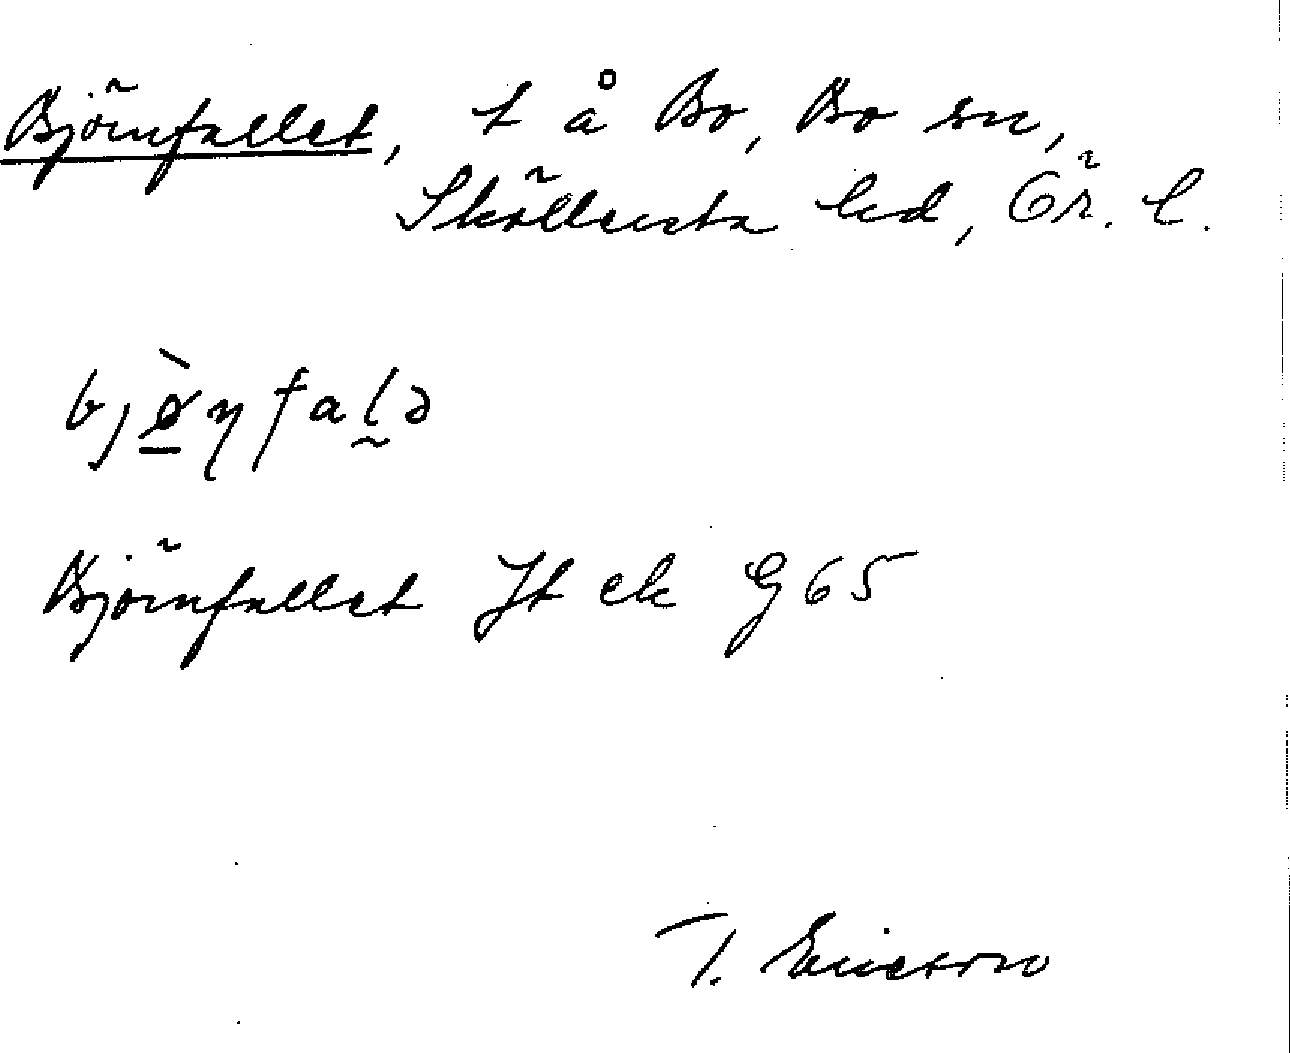 Björnfallet, t å Bo, Bo sn,
Sköllersta hd, Ör. l.
bjø̱̀ɳfal̰ə
Björnfallet Jt ek G65
T. Ericsson